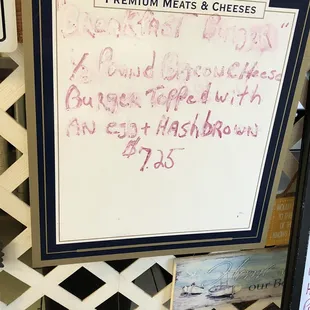 PREMIUM MEATS & CHEESES
"Breakfast Burger"
½ Pound Bacon Cheese
Burger Topped with
AN egg + HAShbrown
$7.25
our B